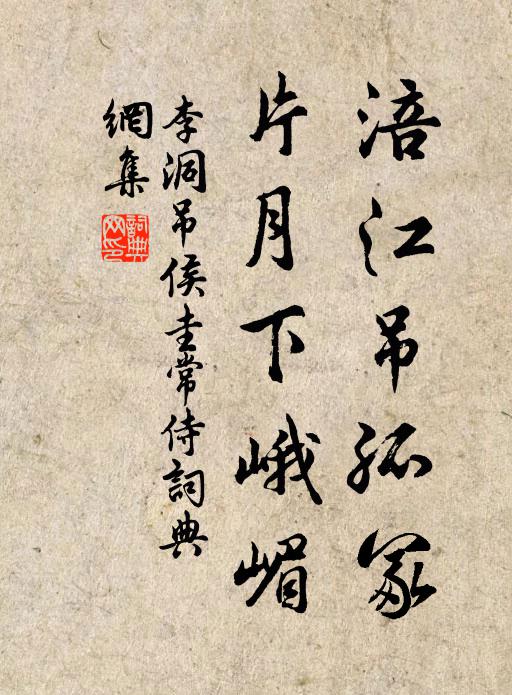 涪江吊孤冢
片月下峨嵋
李洞吊侯圭常侍詞典
網集
詞典
网印